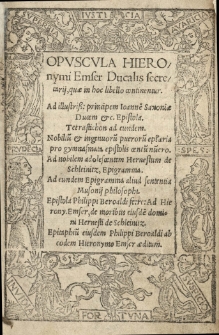 IVSTICIA
AVARICIA
SPES
FORTVNA
OPVSCVLA HIERO,
nymi Emser Ducalis secre,
tarij, quæ in hoc libello continentur.
Ad illustriss: principem Ioannē Saxoniæ
Ducem &c. Epistola.
Tetrastichon ad eundem.
Nobiliū & ingenuorū puerorū
pro gymnasmate epistolis
Ad nobilem adolescentem Hernestum de
Schleinitz, Epigramma.
Ad eundem Epigramma aliud sententia
Musonij philosophi.
Epistola Philippi Beroaldi secre: Ad Hie
rony. Emser, de moribus eiusdē domi
ni Hernesti de Schleinitz.
Epitaphiū eiusdem Philippi Beroaldi ab
eodem Hieronymo Emser æditum.